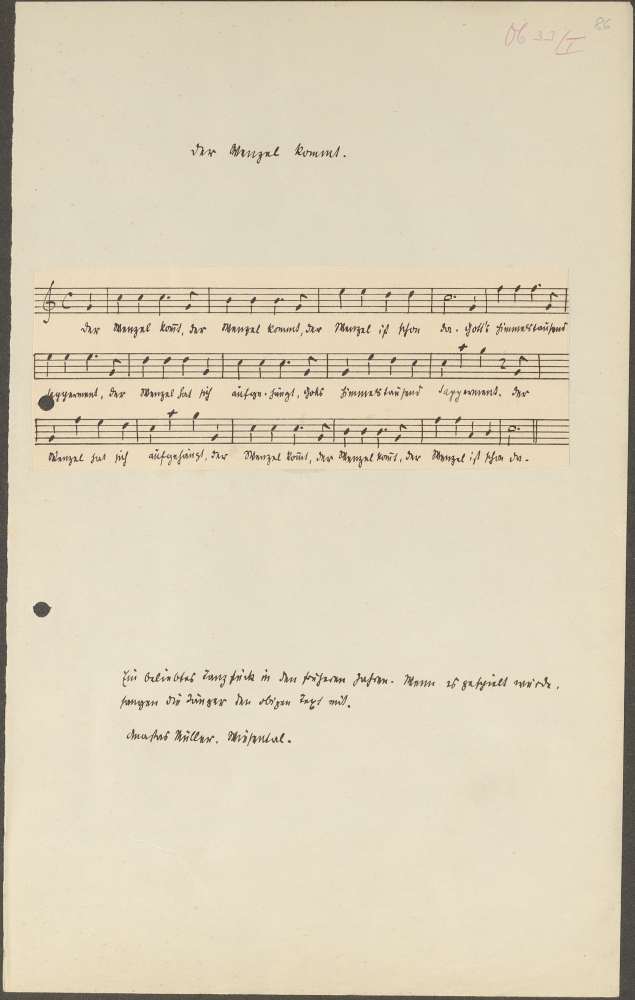 86
Ob 33/I
Der Wenzel kommt.
Der Wenzel kom̄t, der Wenzel kommt, der Wenzel ist schon da. Gott's Himmelstausend
sapperment, der Wenzel hat sich aufge-hängt, Gotts Himmelstausend sapperment. Der
Wenzel hat sich aufgehängt, der Wenzel kom̄t, der Wenzel kom̄t, der Wenzel ist schon da.
Ein beliebtes Tanzstück in den früheren Jahren. Wenn es gespielt wurde,
sangen die Tänzer den obigen Text mit.
Müller. Wiesental.